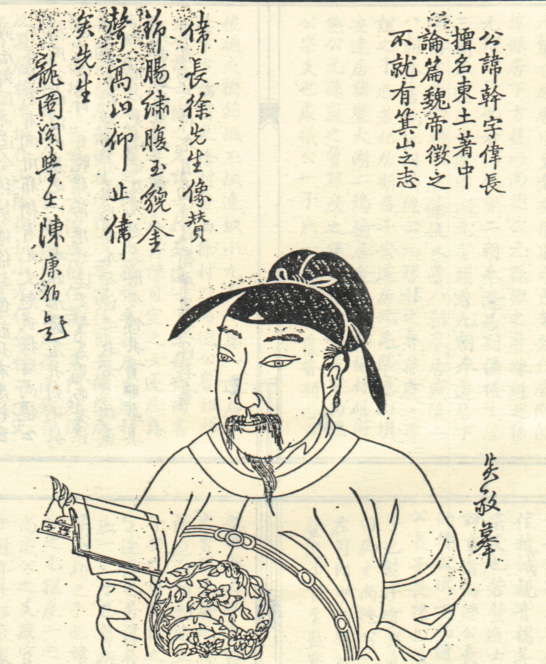 公諱幹字偉長
擅名東土著中
論篇魏帝徵之
不就有箕山之志
偉長徐先生像贊
錦腸繡腹玉貌金
聲高山仰止偉
矣先生
龍圖閣學士陳康伯題